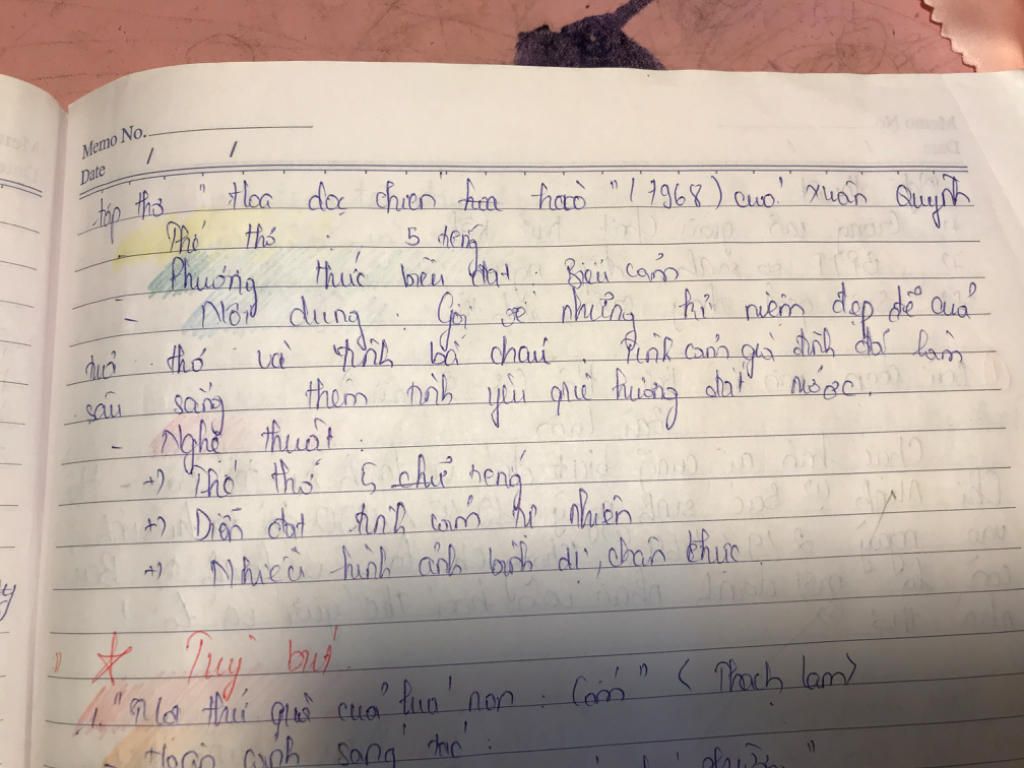 Memo No.
Date / /
tập thơ " Hoa dọc chiến hoa haò " (1968) của Xuân Quỳnh
Thể thơ : 5 tiếng
- Phương thức biểu đạt : Biểu cảm
- Nội dung : Gợi về những kỉ niệm đẹp đẽ của
tuổi thơ và tình bà cháu. Tình cảm gia đình đã làm
sâu sắng thêm tình yêu quê hương đất nước.
- Nghệ thuật :
+) Thể thơ 5 chữ tiếng
+) Diễn đạt tình cảm tự nhiên
+) Nhiều hình ảnh bình dị, chân thực
* Tuỳ bút
1. "Một thứ quà của lúa non : Cốm" ( Thạch lam)
- Hoàn cảnh sáng tác :